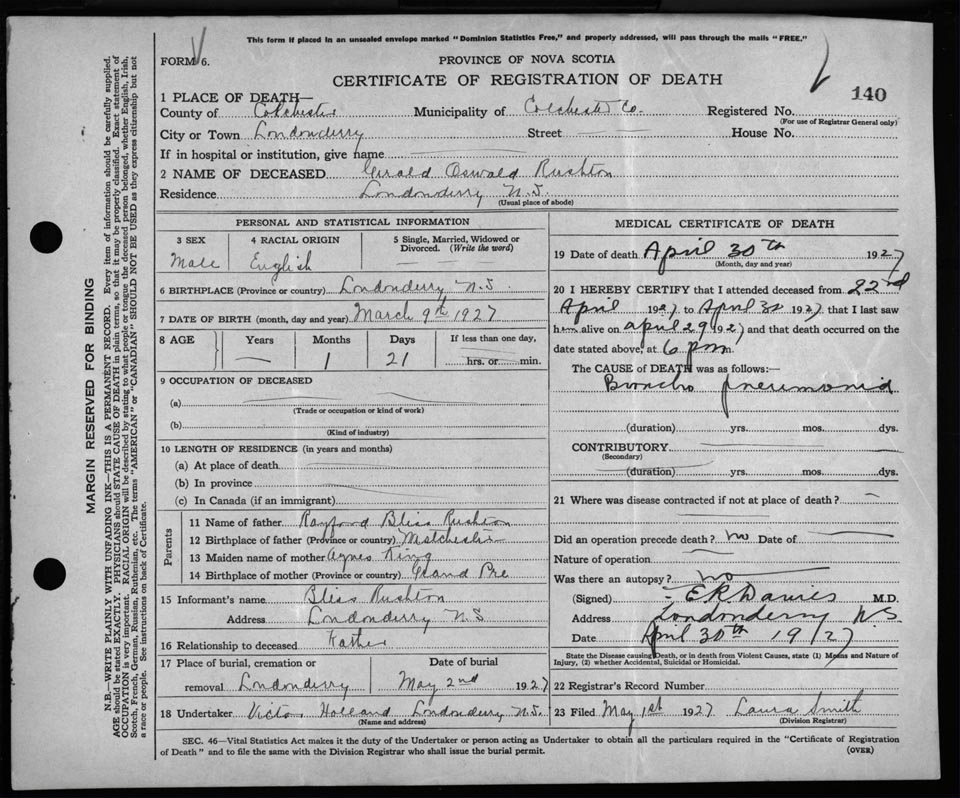 This form if placed in an unsealed envelope marked "Dominion Statistics Free," and properly addressed, will pass through the mails "FREE."
FORM 6.
PROVINCE OF NOVA SCOTIA
CERTIFICATE OF REGISTRATION OF DEATH
140
1 PLACE OF DEATH—
County of Colchester Municipality of Colchester Co. Registered No.
(For use of Registrar General only)
City or Town Londonderry Street House No.
If in hospital or institution, give name
2 NAME OF DECEASED Gerald Oswald Rushton
Residence Londonderry N.S.
(Usual place of abode)
PERSONAL AND STATISTICAL INFORMATION
3 SEX 4 RACIAL ORIGIN 5 Single, Married, Widowed or Divorced. (Write the word)
Male English
6 BIRTHPLACE (Province or country) Londonderry N.S.
7 DATE OF BIRTH (month, day and year) March 9th 1927
8 AGE Years Months Days If less than one day,
— 1 21 hrs. or min.
9 OCCUPATION OF DECEASED
(a)
(Trade or occupation or kind of work)
(b)
(Kind of industry)
10 LENGTH OF RESIDENCE (in years and months)
(a) At place of death
(b) In province
(c) In Canada (if an immigrant)
Parents
11 Name of father Rayford Bliss Rushton
12 Birthplace of father (Province or country)
13 Maiden name of mother Agnes King
14 Birthplace of mother (Province or country) Grand Pre
15 Informant's name Bliss Rushton
Address Londonderry N S
16 Relationship to deceased Father
17 Place of burial, cremation or Date of burial
removal Londonderry May 2nd 1927
18 Undertaker Victor Holland Londonderry N.S.
(Name and address)
MEDICAL CERTIFICATE OF DEATH
19 Date of death April 30th 1927
(Month, day and year)
20 I HEREBY CERTIFY that I attended deceased from 22nd
April 1927 to April 30 1927 that I last saw
him alive on April 29 1927 and that death occurred on
date stated above, at 6 pm
The CAUSE of DEATH was as follows:—
Broncho pneumonia
(duration) yrs. mos. dys.
CONTRIBUTORY
(Secondary)
(duration) yrs. mos. dys.
21 Where was disease contracted if not at place of death? —
Did an operation precede death? no Date of
Nature of operation
Was there an autopsy? no
(Signed) E R Davies M.D.
Address Londonderry N.S.
Date April 30th 1927
State the Disease causing Death, or in death from Violent Causes, state (1) Means and Nature of
Injury, (2) whether Accidental, Suicidal or Homicidal.
22 Registrar's Record Number
23 Filed May 1st 1927 Laura Smith
(Division Registrar)
SEC. 46—Vital Statistics Act makes it the duty of the Undertaker or person acting as Undertaker to obtain all the particulars required in the "Certificate of Registration
of Death" and to file the same with the Division Registrar who shall issue the burial permit.
(OVER)
MARGIN RESERVED FOR BINDING
N.B.—WRITE PLAINLY WITH UNFADING INK—THIS IS A PERMANENT RECORD. Every item of information should be carefully supplied.
AGE should be stated EXACTLY. PHYSICIANS should STATE CAUSE OF DEATH in plain terms so that it may be properly classified. Exact statement of
OCCUPATION is very important. RACIAL ORIGIN will be described by stating to what people or tongue the deceased person belonged, whether English, Irish,
Scotch, French, German, Russian, Ruthenian, etc. The terms "AMERICAN" or "CANADIAN" SHOULD NOT BE USED as they express citizenship but not
a race or people. See instructions on back of Certificate.